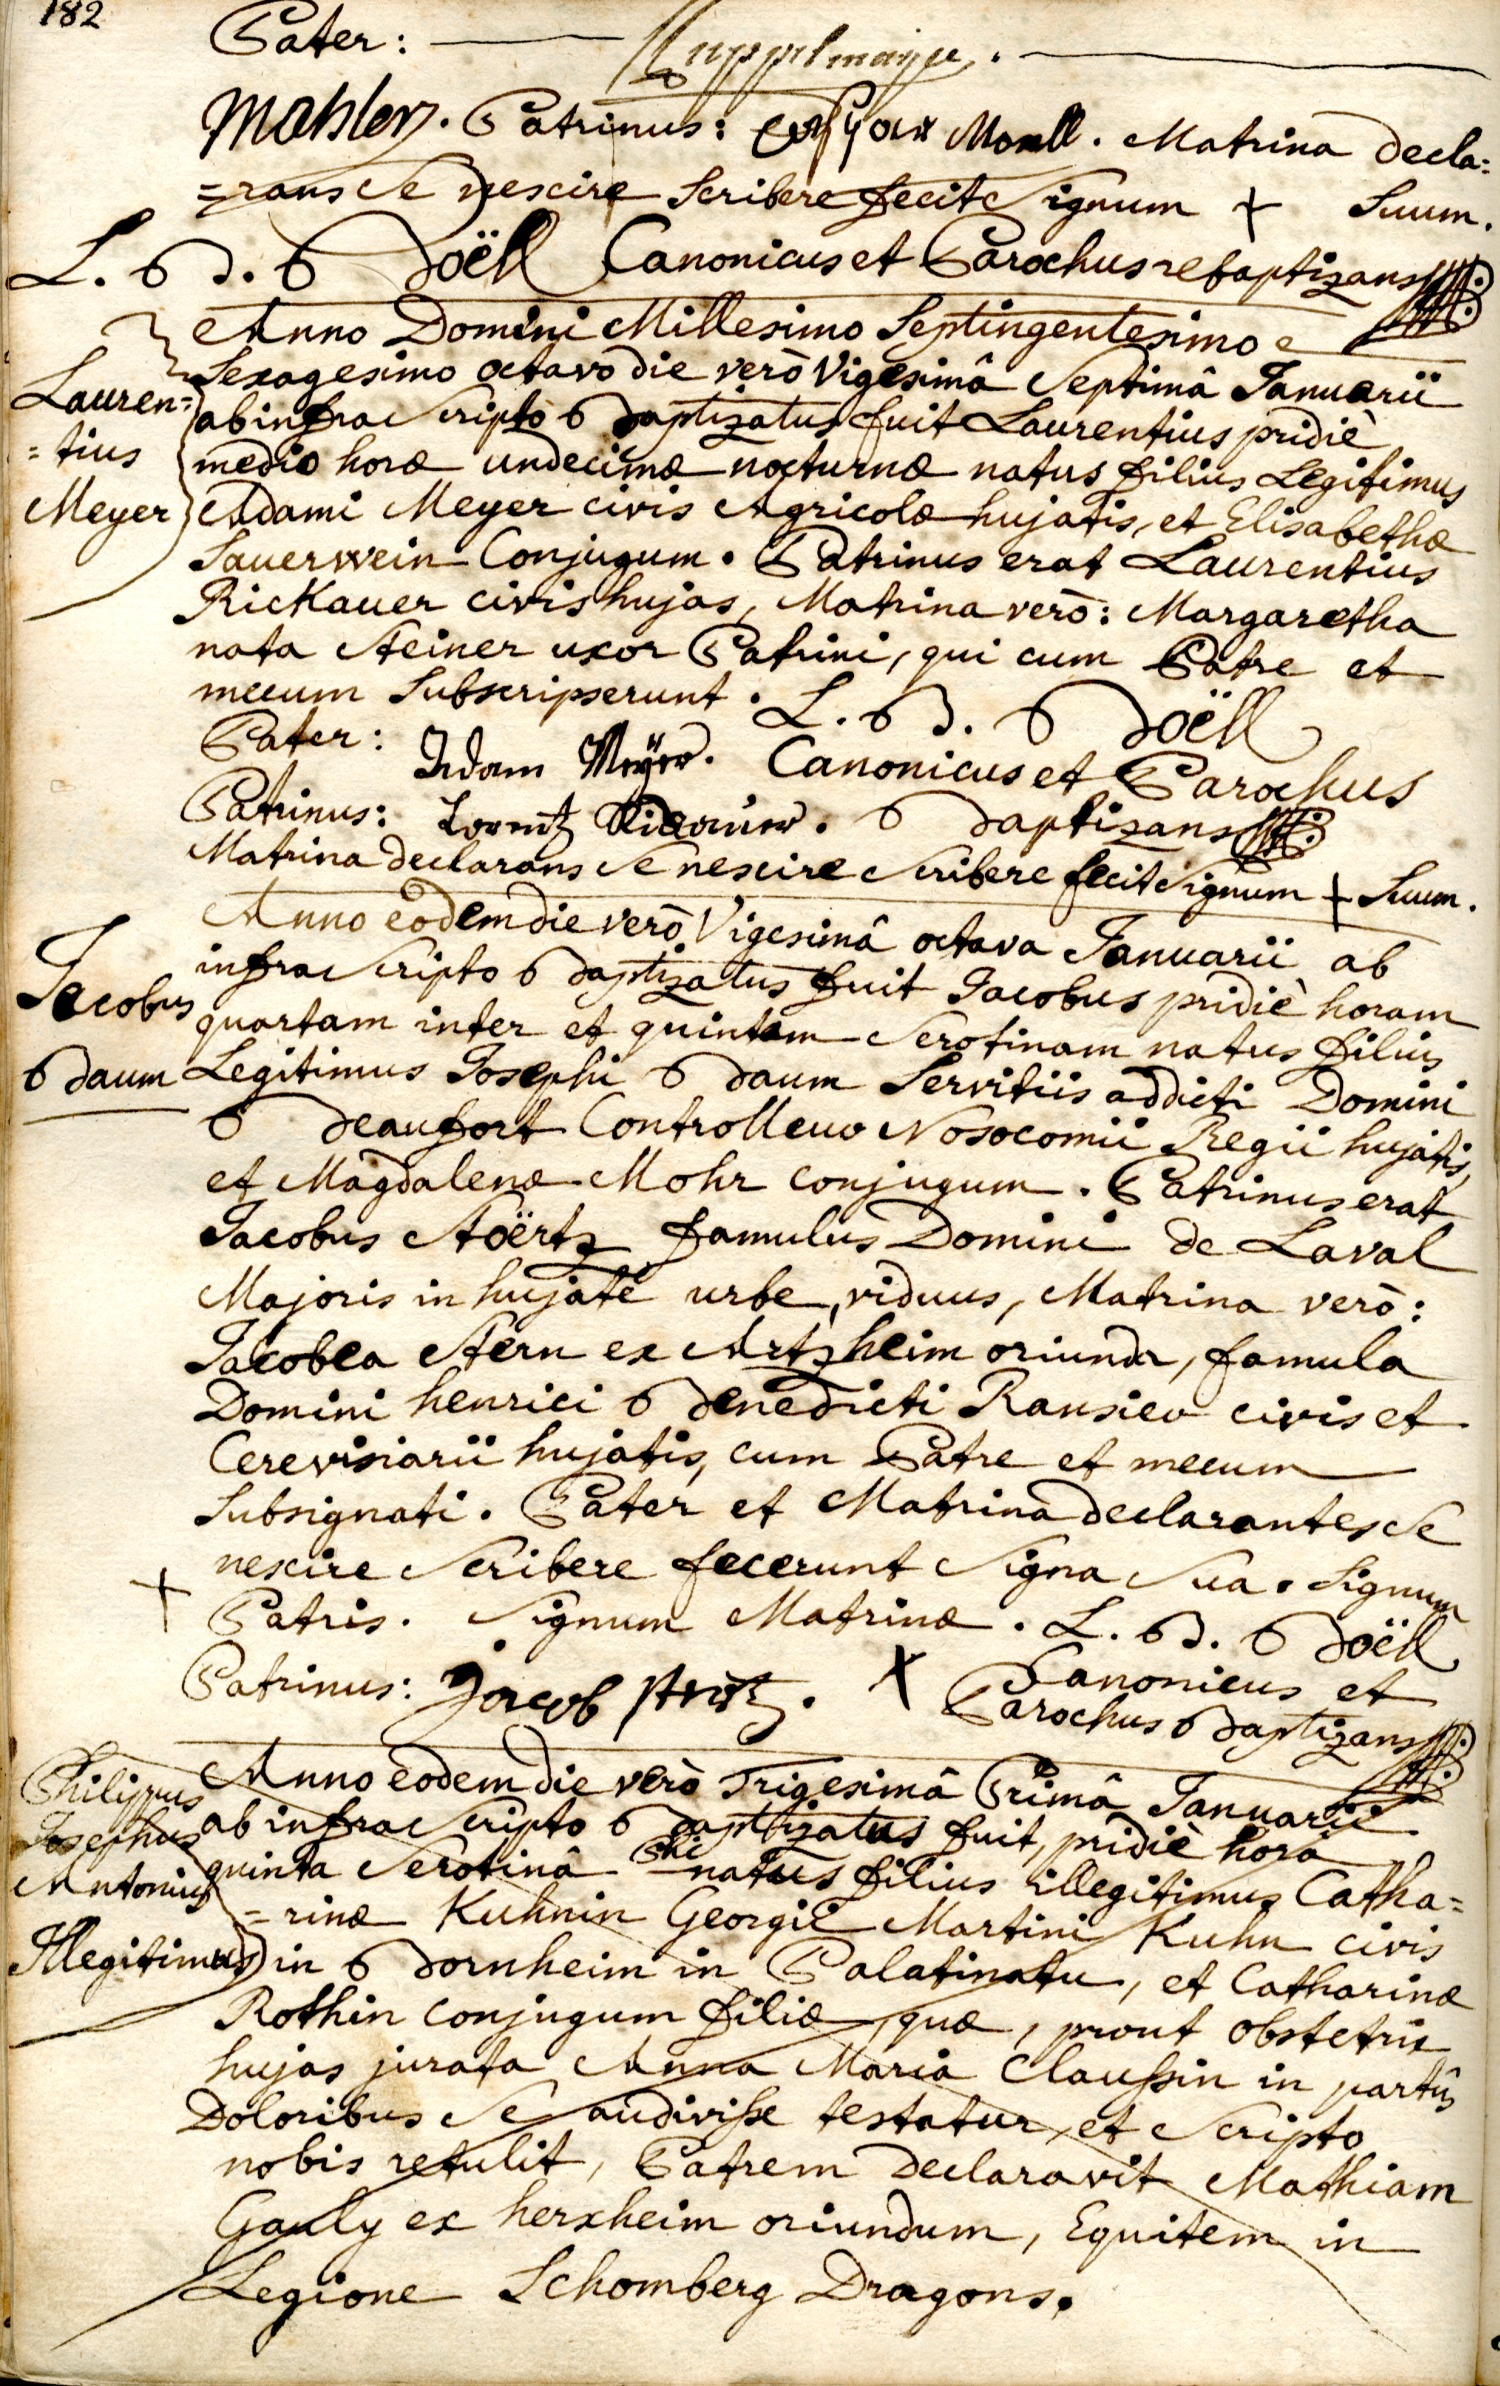 182
Pater:
Mahler. Patrinus: Morell. Matrina decla=
=rans Se nescire Scribere fecit Signum + Suum.
L. B. Boëll Canonicus et Parochus rebaptizans
Anno Domini Millesimo Septingentesimo
Sexagesimo octavo die verò Vigesimâ Septimâ Januarii
Lauren=
=tius
Meyer
ab infra Scripto Baptizatus fuit Laurentius pridiè
mediâ horæ undecimæ nocturnæ natus filius Legitimus
Adami Meyer civis Agricolæ hujatis, et Elisabethæ
Sauerwein Conjugum. Patrinus erat Laurentius
Rickauer civis hujas, Matrina verò: Margaretha
nata Steiner uxor Patrini, qui cum Patre et
mecum Subscripserunt. L. B. Boëll
Pater: Adam Meyer. Canonicus et Parochus
Patrinus: Lorentz Rickauer. Baptizans
Matrina declarans Se nescire Scribere fecit Signum + Suum.
Anno eodem die verò Vigesimâ octava Januarii ab
Jacobus
Baum
infra Scripto Baptizatus fuit Jacobus pridiè horam
quartam inter et quintam Serotinam natus filius
Legitimus Josephi Baum Servitiis addicti Domini
Beaufort Controlleur Nosocomii Regii hujatis,
et Magdalenæ Mohr conjugum. Patrinus erat
Jacobus Stöertz famulus Domini de Laval
Majoris in hujate urbe, viduus, Matrina verò:
Jacobea Stern ex Artzheim oriunda, famula
Domini henrici Benedicti Ransier civis et
Cerevisiarii hujatis, cum Patre et mecum
Subsignati. Pater et Matrina declarantes Se
nescire Scribere fecerunt Signa Sua. Signum
+ Patris. Signum Matrinæ. L. B. Boëll
Patrinus: Jacob . X Canonicus et
Parochus Baptizans
Anno eodem die verò Trigesimâ Primâ Januarii
Philippus
Josephus
Antonius
Illegitimus
ab infra Scripto Baptizatus fuit, pridiè hora
quinta Serotinâ hic natus filius illegitimus Catha=
=rinæ Kuhnin Georgii Martini Kuhn civis
in Bornheim in Palatinatu, et Catharinæ
Rothin conjugum filiæ, quæ, prout obstetrix
hujas jurata Anna Maria Claussin in partûs
Doloribus Se audivisse testatur, et Scripto
nobis retulit, Patrem declaravit Mathiam
Gauly ex herxheim oriundum, Equitem in
Legione Schomberg Dragons.